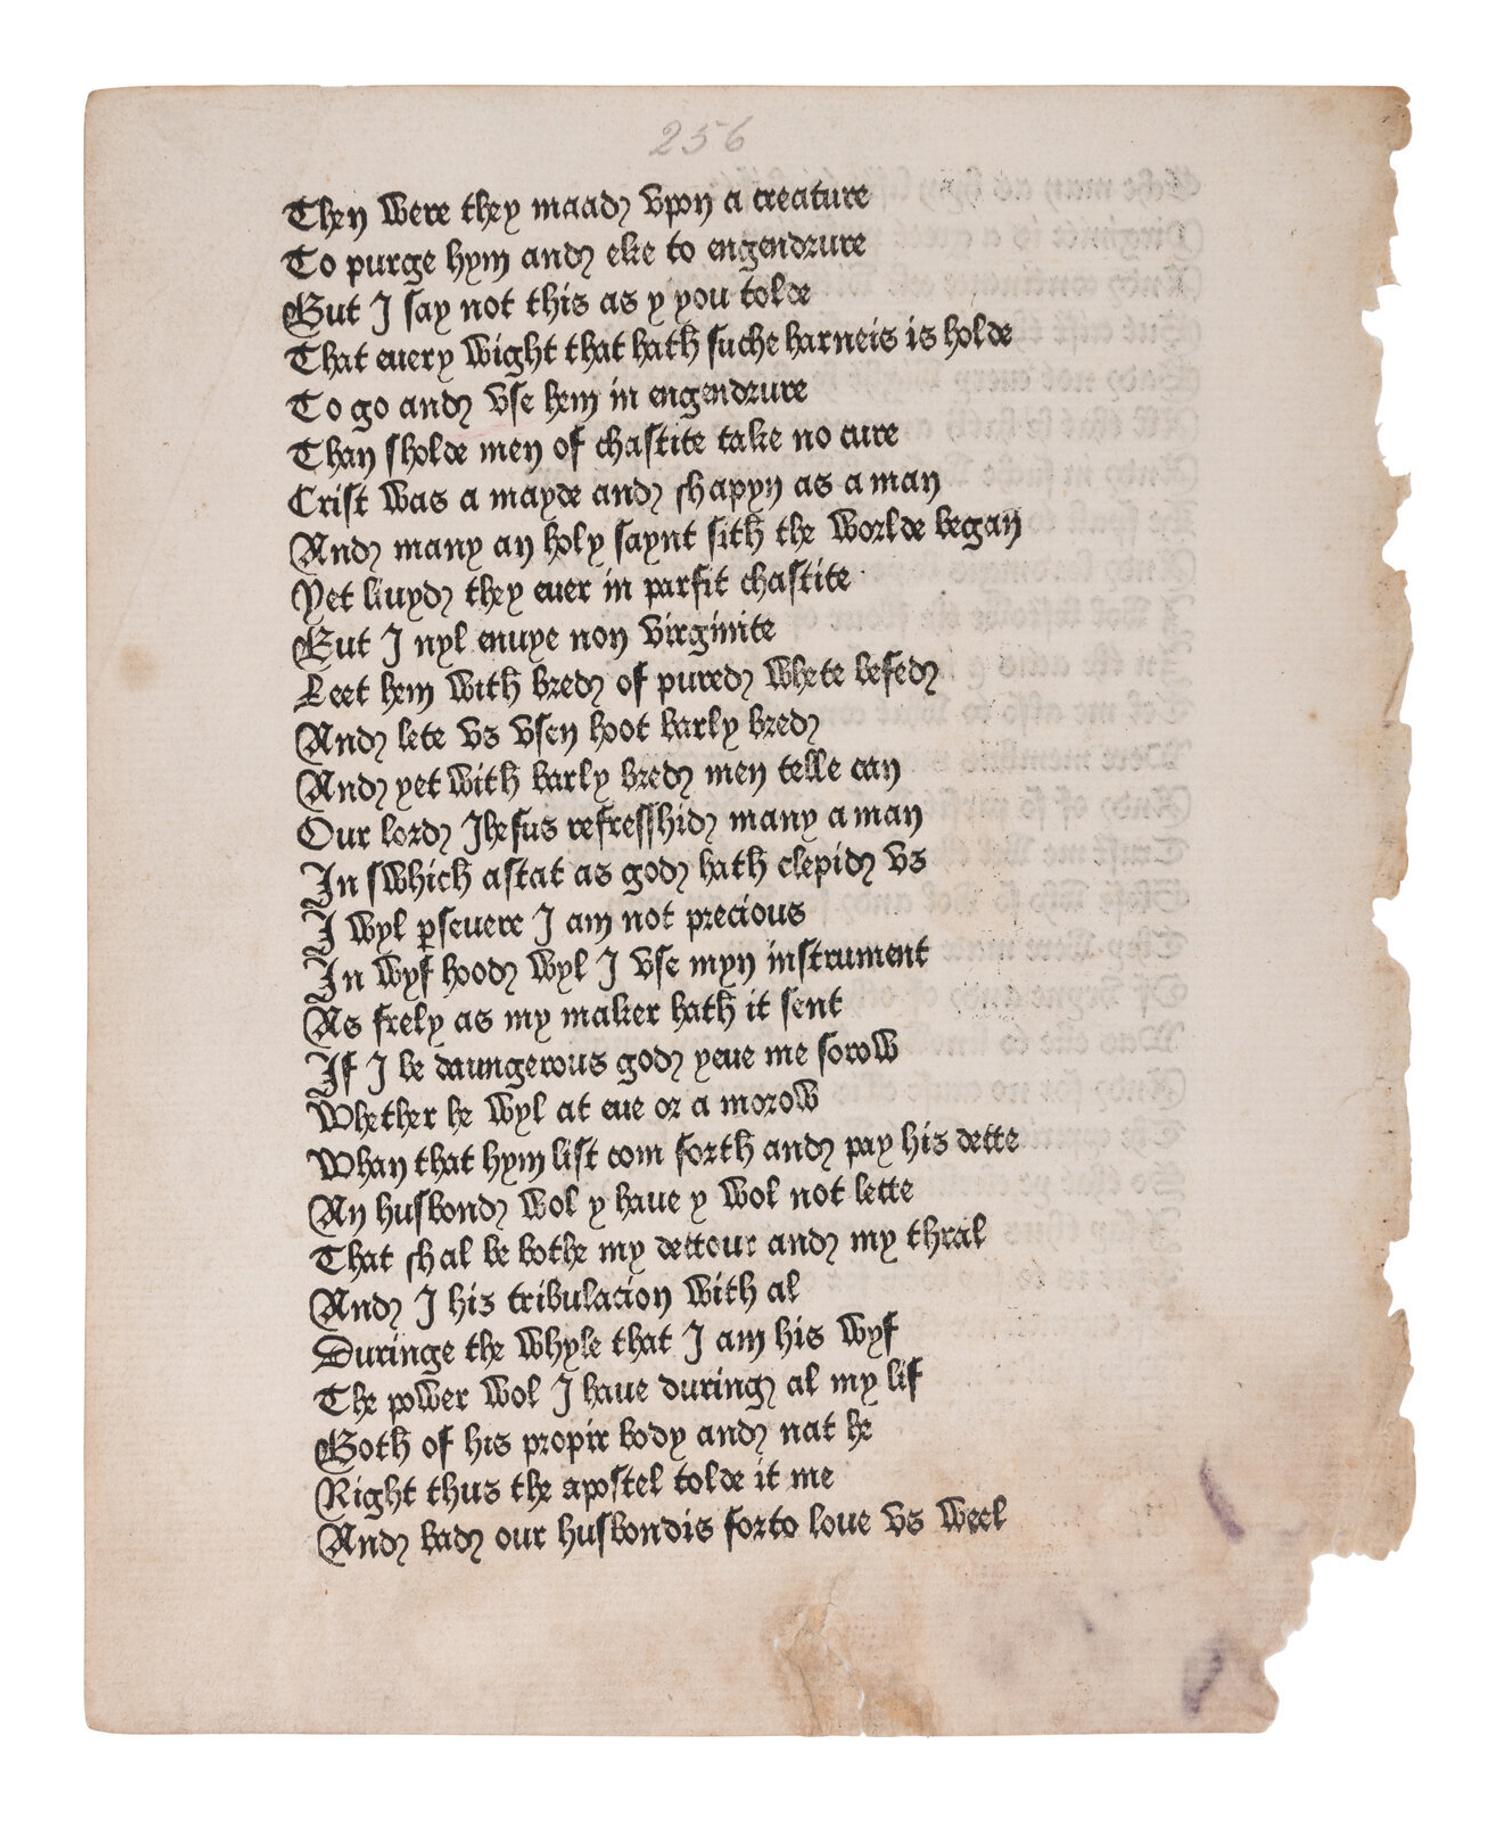 256
Then were they maad vpon a creature
To purge hym and eke to engendrure
But I say not this as y you tolde
That euery wight that hath suche harneis is holde
To go and vse hem in engendrure
Than sholde men of chastite take no cure
Crist was a mayde and shapyn as a man
And many an holy saynt sith the worlde began
Yet liuyd they euer in parfit chastite
But I nyl enuye non virginite
Leet hem with bred of pured whete be fed
And lete vs vsen hoot barly bred
And yet with barly bred men telle can
Our lord Ihesus refresshid many a man
In swhich astat as god hath clepid vs
I wyl ꝑseuere I am not precious
In wyf hood wyl I vse myn instrument
As frely as my maker hath it sent
If I be daungerous god yeue me sorow
Whether he wyl at eue or a morow
Whan that hym list com forth and pay his dette
An husbond wol y haue y wol not lette
That shal be bothe my dettour and my thral
And I his tribulacion with al
Duringe the whyle that I am his wyf
The power wol I haue during al my lif
Both of his propir body and nat he
Right thus the apostel tolde it me
And bad our husbondis forto loue vs weel